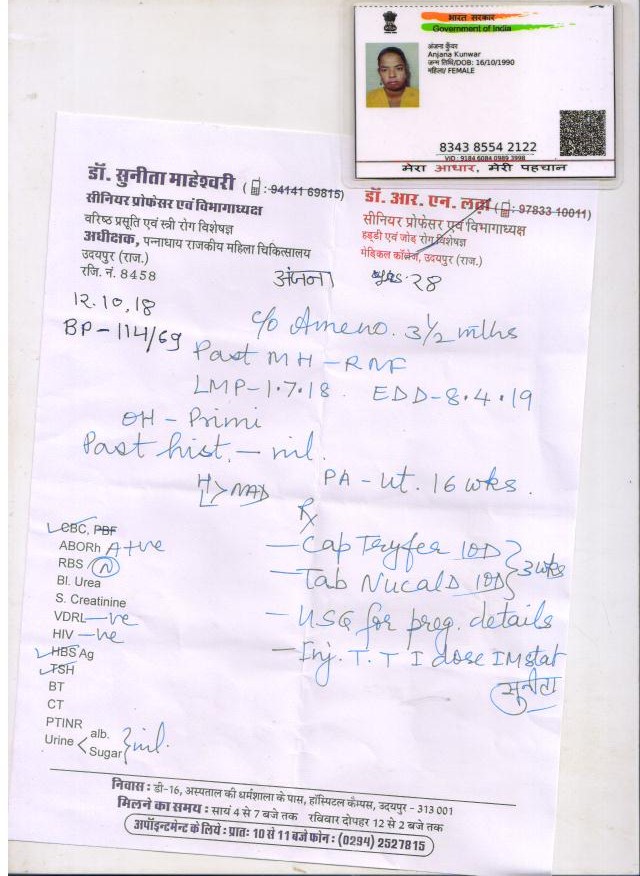 भारत सरकार
Government of India
अंजना कुँवर
Anjana Kunwar
जन्म तिथि/DOB: 16/10/1990
महिला/ FEMALE
8343 8554 2122
VID : 9184 6084 0989 3998
मेरा आधार, मेरी पहचान
डॉ. सुनीता माहेश्वरी ( : 94141 69815)
सीनियर प्रोफेसर एवं विभागाध्यक्ष
वरिष्ठ प्रसूति एवं स्त्री रोग विशेषज्ञ
अधीक्षक, पन्नाधाय राजकीय महिला चिकित्सालय
उदयपुर (राज.)
रजि. नं. 8458
डॉ. आर. एन. लढ्ढा ( : 97833 10011)
सीनियर प्रोफेसर एवं विभागाध्यक्ष
हड्डी एवं जोड़ रोग विशेषज्ञ
मेडिकल कॉलेज, उदयपुर (राज.)
अंजना 28
12.10.18
BP - 114/69
c/o Ameno. 3 1/2 mths
Past MH - RNF
LMP - 1.7.18 EDD - 8.4.19
OH - Primi
Past hist. - nil.
H L > NAD PA - Ut. 16 wks.
Rx
- Cap Teryfer 1OD } 3 wks
- Tab Nucal D 1OD
- USG for preg. details
- Inj. T.T I dose IM stat
सुनीता
CBC, PBF
ABORh A+ve
RBS N
Bl. Urea
S. Creatinine
VDRL -ve
HIV -ve
HBS Ag
TSH
BT
CT
PTINR
Urine < alb. Sugar } nil.
निवास : डी-16, अस्पताल की धर्मशाला के पास, हॉस्पिटल कैम्पस, उदयपुर - 313 001
मिलने का समय : सायं 4 से 7 बजे तक रविवार दोपहर 12 से 2 बजे तक
अपॉइन्टमेन्ट के लिये : प्रातः 10 से 11 बजे फोन : (0294) 2527815